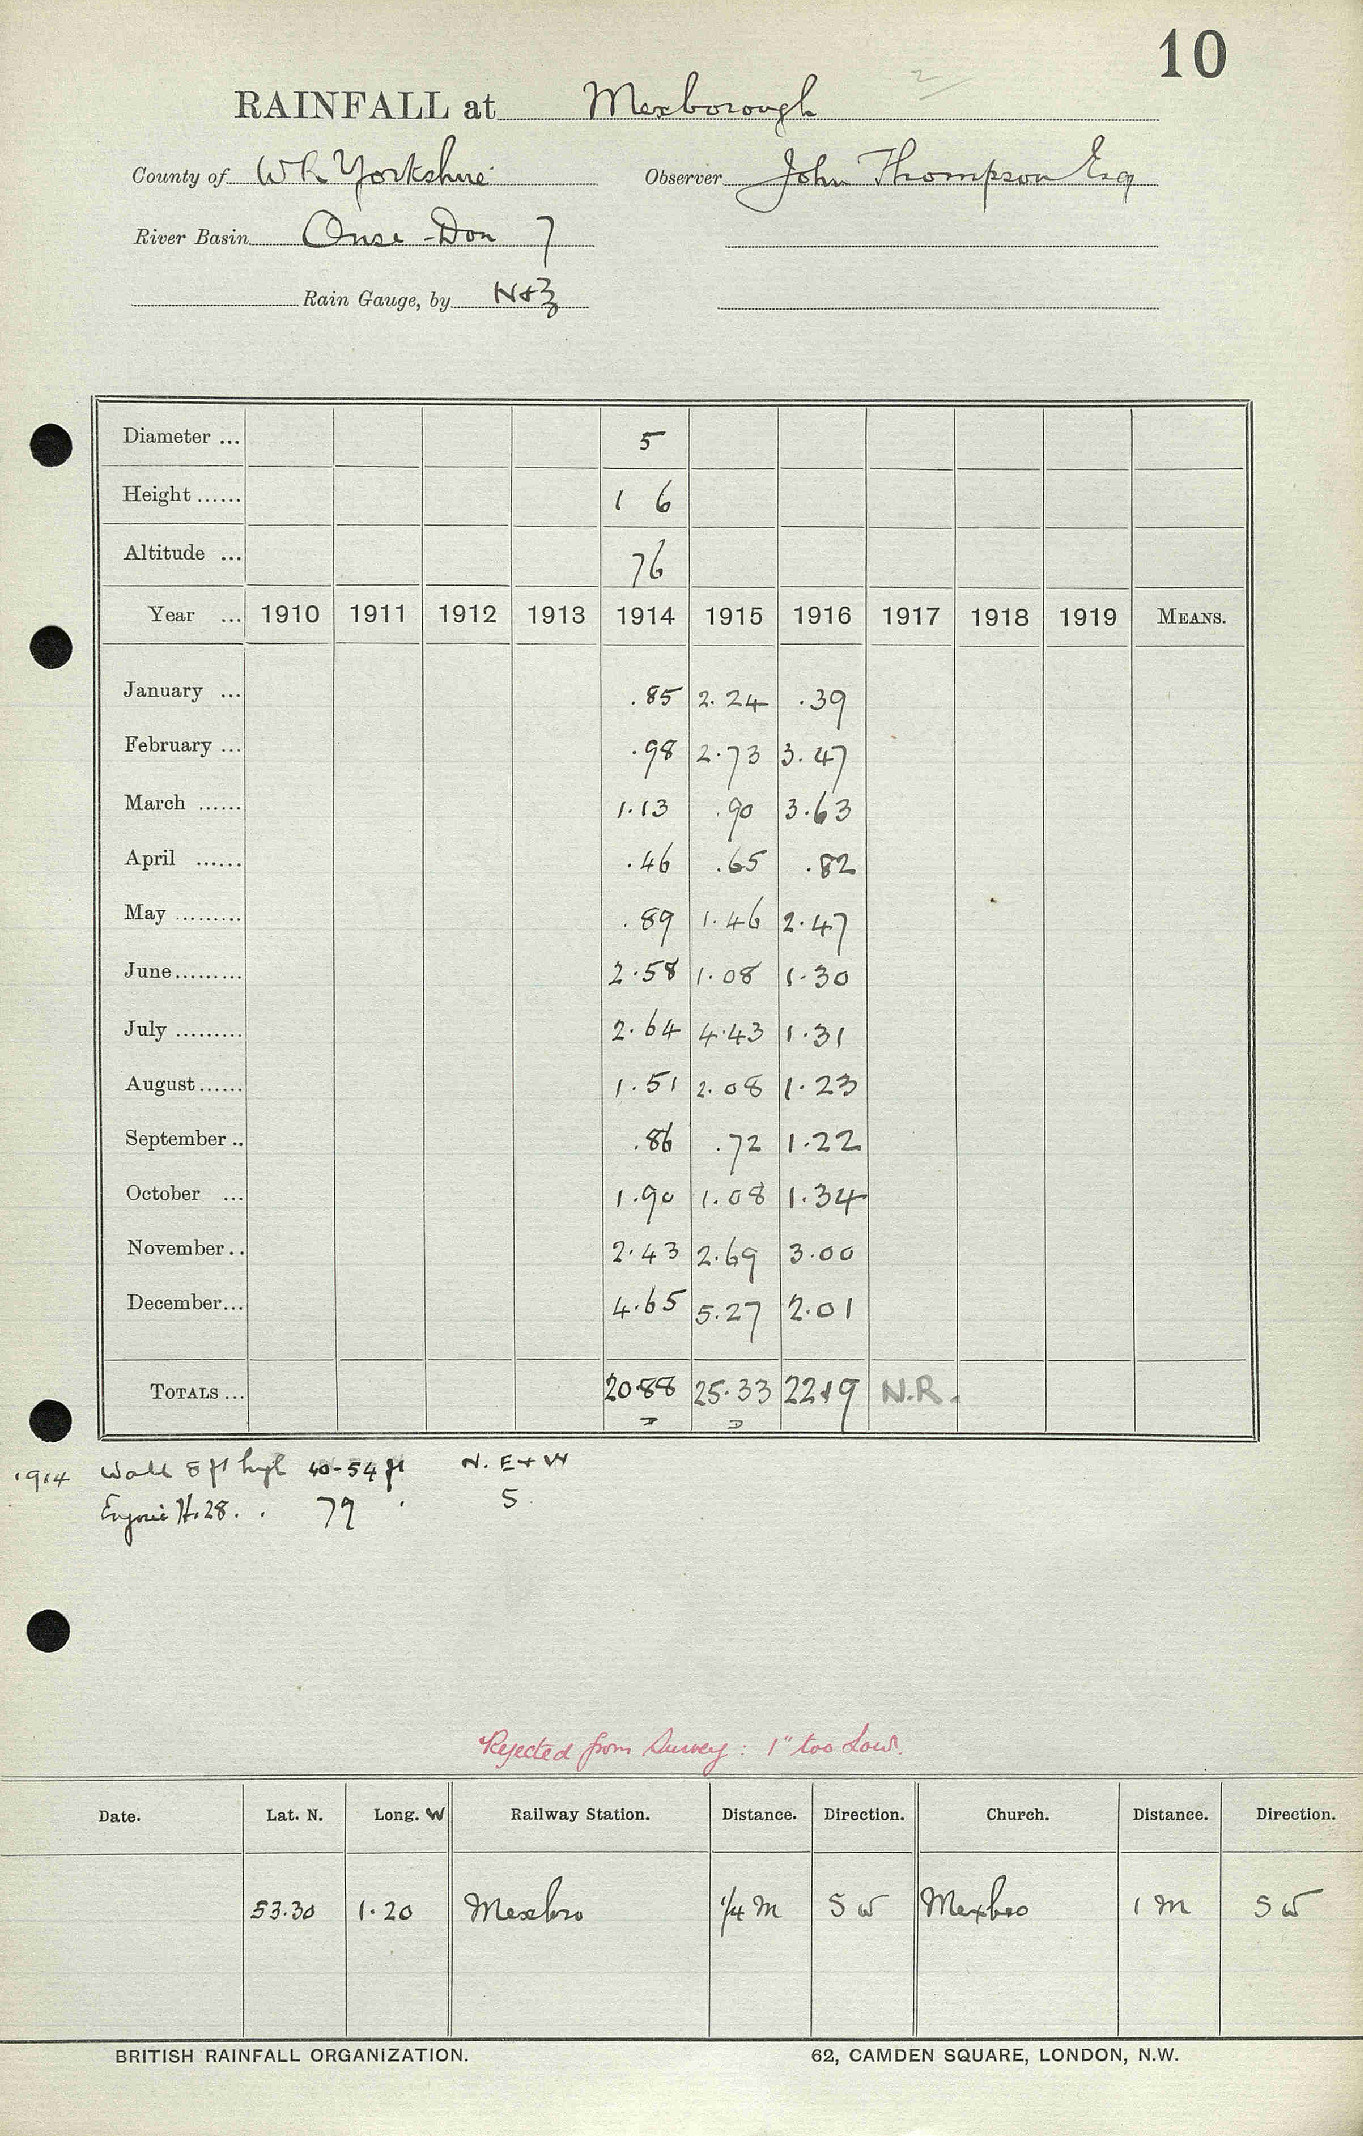 10
RAINFALL at Mexborough
County of WR Yorkshire Observer John Thompson Esq
River Basin Ouse - Don 7
Rain Gauge, by N+Z
Diameter ... 5
Height ...... 1 6
Altitude ... 76
Year ... 1910 1911 1912 1913 1914 1915 1916 1917 1918 1919 MEANS.
January ... .85 2.24 .39
February ... .98 2.73 3.47
March ...... 1.13 .90 3.63
April ...... .46 .65 .82
May ......... .89 1.46 2.47
June......... 2.58 1.08 1.30
July ......... 2.64 4.43 1.31
August...... 1.51 2.08 1.23
September .. .86 .72 1.22
October ... 1.90 1.08 1.34
November .. 2.43 2.69 3.00
December... 4.65 5.27 2.01
TOTALS ... 20.88 25.33 22.19 N.R.
1914 Wall 8 ft high 40-54 ft N. E + W
Engine H. 28 . . 79 S
Rejected from Survey : 1" too Low.
Date. Lat. N. Long. W Railway Station. Distance. Direction. Church. Distance. Direction.
53.30 1.20 Mexbro 1/4 M SW Mexbro 1 M SW
BRITISH RAINFALL ORGANIZATION. 62, CAMDEN SQUARE, LONDON, N.W.